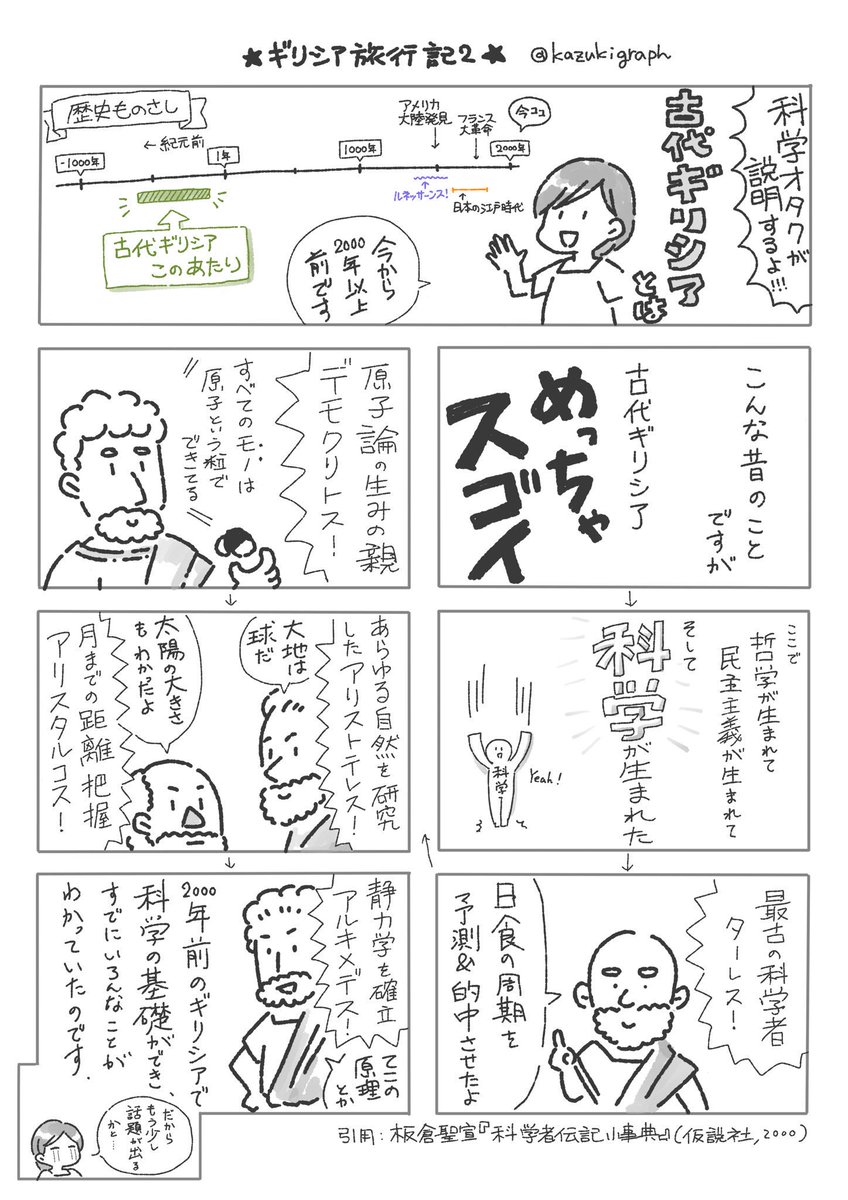 ★ギリシア旅行記2★ @kazukigraph
科学オタクが
説明するよ!!!
古代ギリシアとは
歴史ものさし
←紀元前
-1000年
1年
1000年
2000年
アメリカ
大陸発見
フランス
大革命
今ココ
ルネッサーンス!
日本の江戸時代
古代ギリシア
このあたり
今から
2000
年以上
前です
こんな昔のこと
ですが
古代ギリシア
めっちゃ
スゴイ
ここで
哲学が生まれて
民主主義が生まれて
そして
科学が生まれた
科学
Yeah!
最古の科学者
ターレス!
日食の周期を
予測&的中させたよ
原子論の生みの親
デモクリトス!
すべてのモノは
原子という粒で
できてる
あらゆる自然を研究
したアリストテレス!
大地は
球だ
太陽の大きさ
もわかったよ
月までの距離把握
アリスタルコス!
静力学を確立
アルキメデス!
てこの
原理
とか
2000年前のギリシアで
科学の基礎ができ、
すでにいろんなことが
わかっていたのです.
だから
もう少し
話題が出る
かと…
引用:板倉聖宣『科学者伝記小事典』(仮説社,2000)